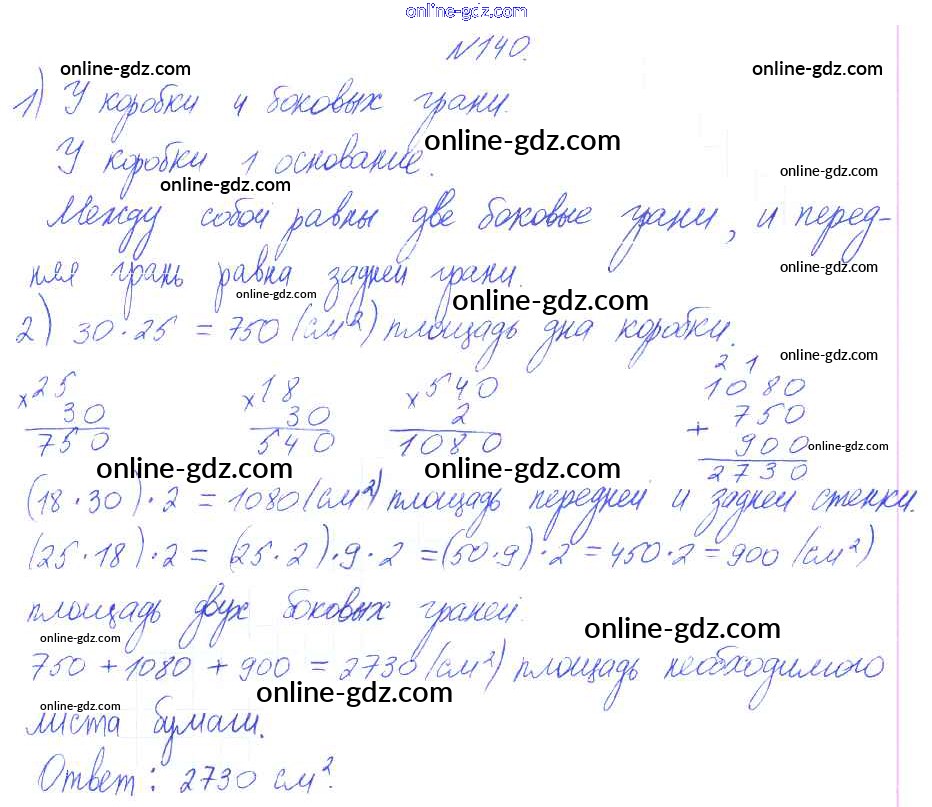 online-gdz.com
№140.
online-gdz.com online-gdz.com
1) У коробки 4 боковых грани.
online-gdz.com
online-gdz.com
У коробки 1 основание.
online-gdz.com
online-gdz.com
online-gdz.com
Между собой равны две боковые грани, и перед-
online-gdz.com
няя грань равна задней грани.
online-gdz.com
online-gdz.com online-gdz.com
2) 30·25 = 750 (см²) площадь дна коробки.
online-gdz.com
2 1
×25 ×18 ×540 1080
30 30 2 + 750
750 540 1080 900 online-gdz.com
2730
online-gdz.com online-gdz.com
(18·30)·2 = 1080 (см²) площадь передней и задней стенки.
(25·18)·2 = (25·2)·9·2 = (50·9)·2 = 450·2 = 900 (см²)
площадь двух боковых граней.
online-gdz.com
online-gdz.com
750 + 1080 + 900 = 2730 (см²) площадь необходимого
online-gdz.com
online-gdz.com
листа бумаги.
Ответ: 2730 см².